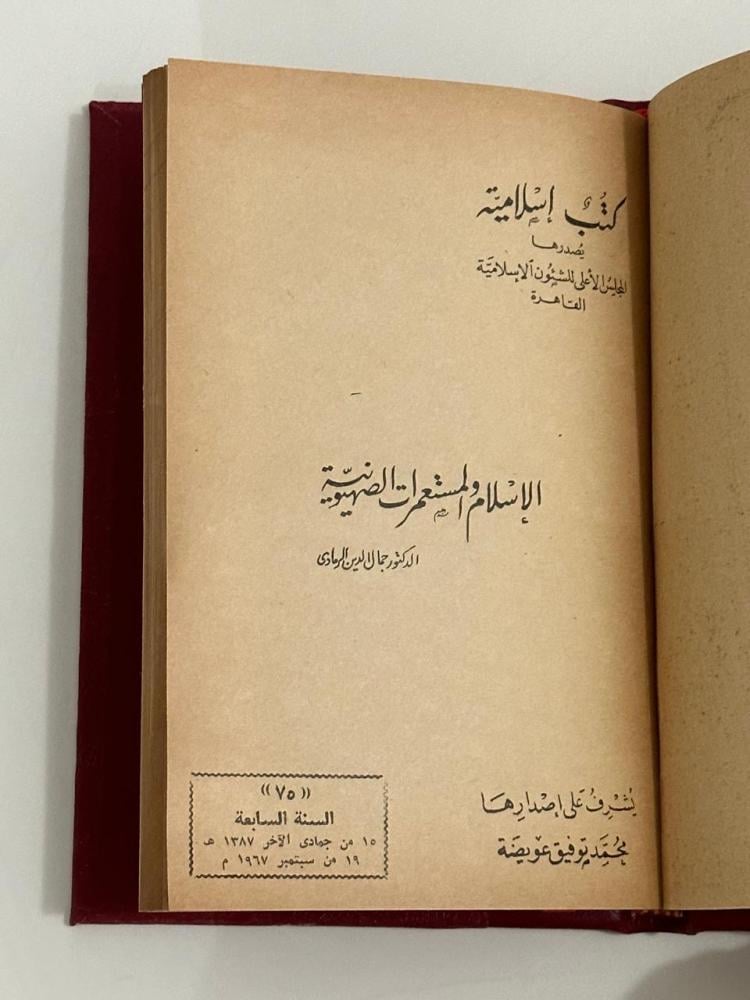 كتب إسلامية
يصدرها
المجلس الأعلى للشئون الإسلامية
القاهرة
الإسلام والمستعمرات الصهيونية
الدكتور جمال الدين الرمادى
يشرف على إصدارها
محمد توفيق عويضة
«٧٥»
السنة السابعة
١٥ من جمادى الآخر ١٣٨٧ هـ
١٩ من سبتمبر ١٩٦٧ م